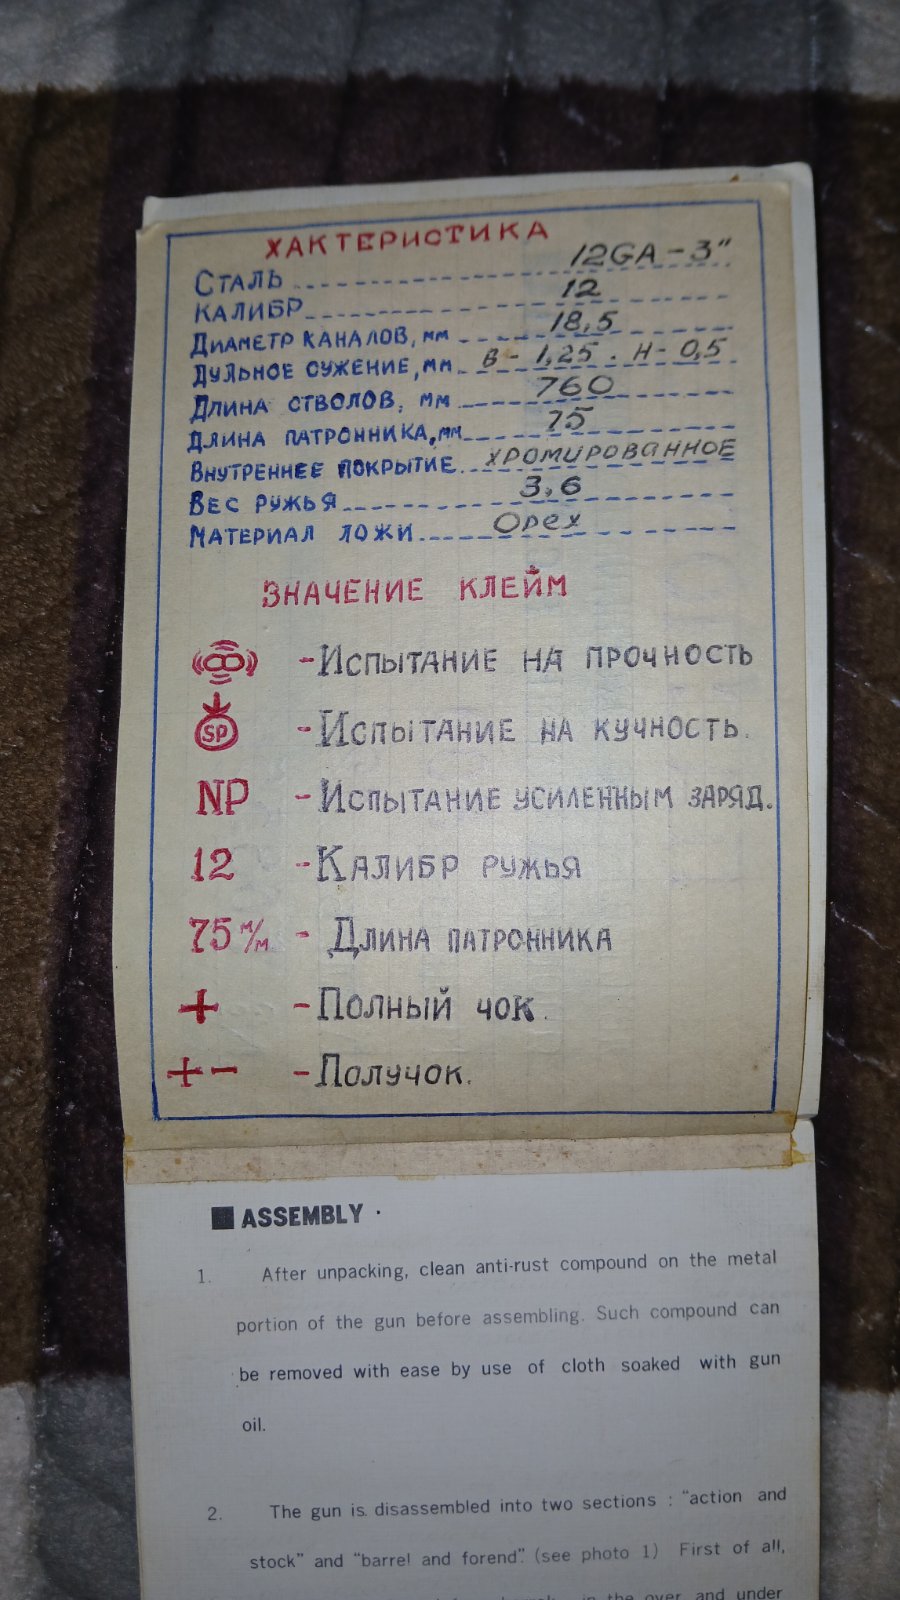 ХАКТЕРИСТИКА
СТАЛЬ 12GA-3"
КАЛИБР 12
ДИАМЕТР КАНАЛОВ, мм 18,5
ДУЛЬНОЕ СУЖЕНИЕ, мм В-1,25. Н-0,5
ДЛИНА СТВОЛОВ, мм 760
ДЛИНА ПАТРОННИКА, мм 75
ВНУТРЕННЕЕ ПОКРЫТИЕ ХРОМИРОВАННОЕ
ВЕС РУЖЬЯ 3,6
МАТЕРИАЛ ЛОЖИ Орех
ЗНАЧЕНИЕ КЛЕЙМ
-ИСПЫТАНИЕ НА ПРОЧНОСТЬ
SP -ИСПЫТАНИЕ НА КУЧНОСТЬ.
NP -ИСПЫТАНИЕ УСИЛЕННЫМ ЗАРЯД.
12 -КАЛИБР РУЖЬЯ
75 м/м - ДЛИНА ПАТРОННИКА
+ -ПОЛНЫЙ ЧОК.
+- -ПОЛУЧОК.
■ ASSEMBLY
1. After unpacking, clean anti-rust compound on the metal
portion of the gun before assembling. Such compound can
be removed with ease by use of cloth soaked with gun
oil.
2. The gun is disassembled into two sections : "action and
stock" and "barrel and forend" (see photo 1) First of all,
in the over and under